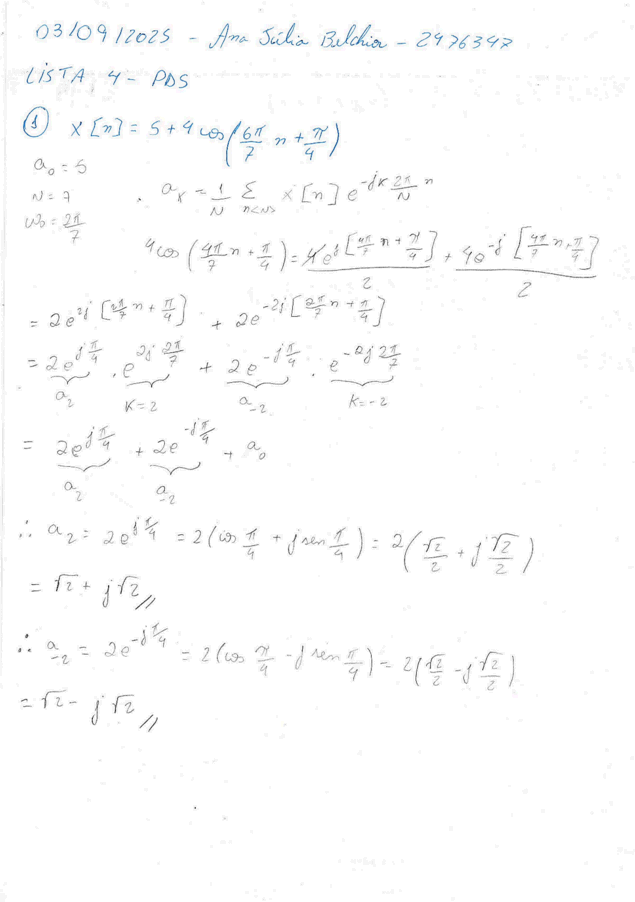 03/09/2025 - Ana Júlia Belchior - 2476347
LISTA 4 - PDS
① x[n] = 5 + 4 cos(6π/7 n + π/4)
a₀ = 5
N = 7 . aₖ = 1/N Σ n=<N> x[n] e^(-jk 2π/N n)
ω₀ = 2π/7
4cos(4π/7 n + π/4) = 4e^(j[4π/7 n + π/4])/2 + 4e^(-j[4π/7 n + π/4])/2
= 2e^(2j[2π/7 n + π/4]) + 2e^(-2j[2π/7 n + π/4])
= 2e^(jπ/4) . e^(2j 2π/7) + 2e^(-jπ/4) . e^(-2j 2π/7)
a₂ K=2 a₋₂ K=-2
= 2e^(jπ/4) + 2e^(-jπ/4) + a₀
a₂ a₋₂
∴ a₂ = 2e^(jπ/4) = 2(cos π/4 + j sen π/4) = 2(√2/2 + j√2/2)
= √2 + j√2 //
∴ a₋₂ = 2e^(-jπ/4) = 2(cos π/4 - j sen π/4) = 2(√2/2 - j√2/2)
= √2 - j√2 //